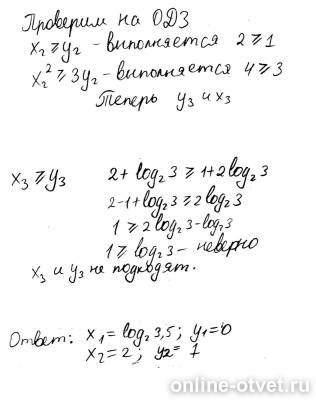 Проверим на ОДЗ
x₂ ≥ y₂ - выполняется 2 ≥ 1
x₂² ≥ 3y₂ - выполняется 4 ≥ 3
Теперь y₃ и x₃
x₃ ≥ y₃ 2 + log₂3 ≥ 1 + 2log₂3
2-1+log₂3 ≥ 2log₂3
1 ≥ 2log₂3 - log₂3
1 ≥ log₂3 - неверно
x₃ и y₃ не подходят.
Ответ: x₁ = log₂3,5; y₁ = 0
x₂ = 2; y₂ = 1
online-otvet.ru